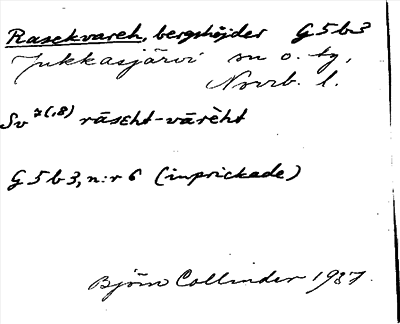 Rasekvareh, bergshöjder G5b3
Jukkasjärvi sn o. tg,
Norrb. l.
Sv 7(,8) rāsɛht-vārèht
G5b3, n:r 6 (inprickade)
Björn Collinder 1937.